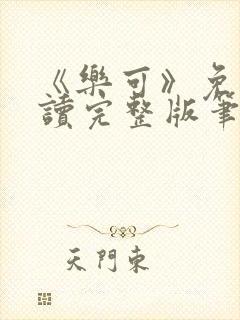 《樂可》免
讀完整版筆
天門東